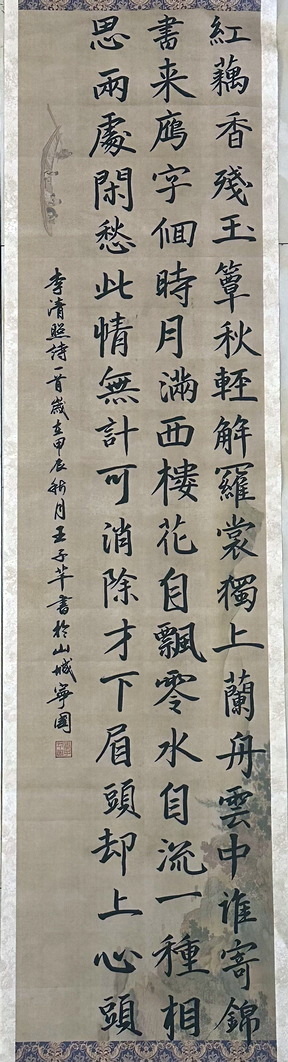 紅藕香殘玉簟秋輕解羅裳獨上蘭舟雲中誰寄錦
書来鴈字佪時月滿西樓花自飄零水自流一種相
思兩處閑愁此情無計可消除才下眉頭却上心頭
李清照詩一首歲在甲辰秋月王子芊書於山城寧國